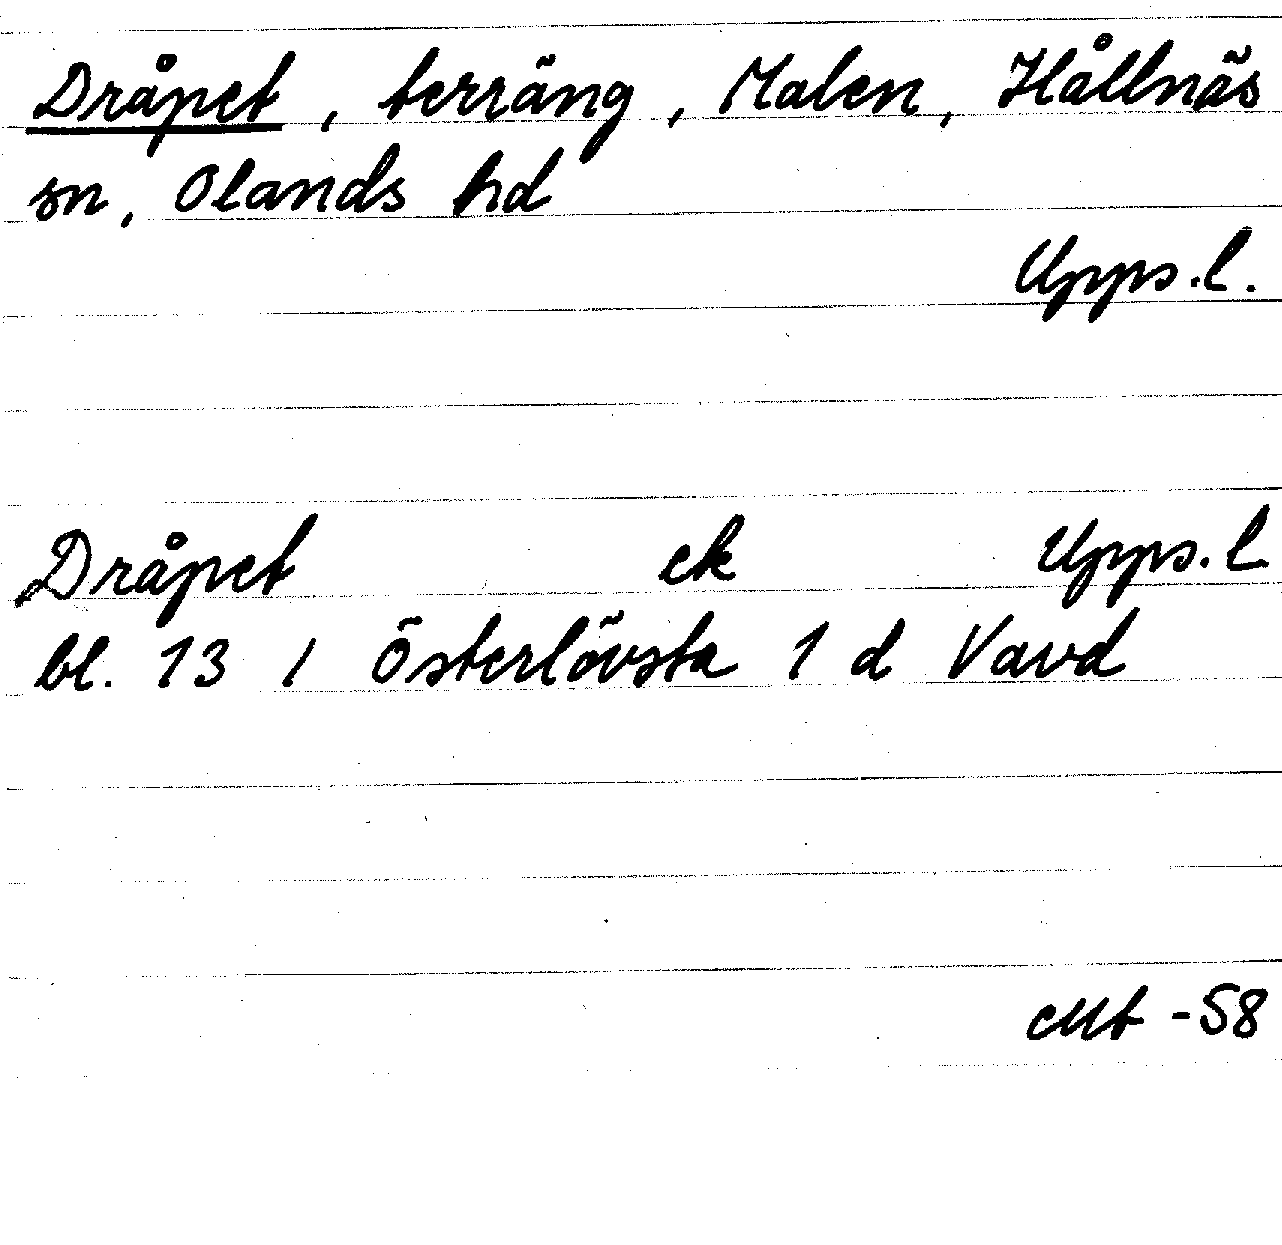 Dråpet, terräng, Malen, Hållnäs
sn, Olands hd
Upps.l.
Dråpet ek Upps.l
bl. 13 I Österlövsta 1 d Vavd
-58